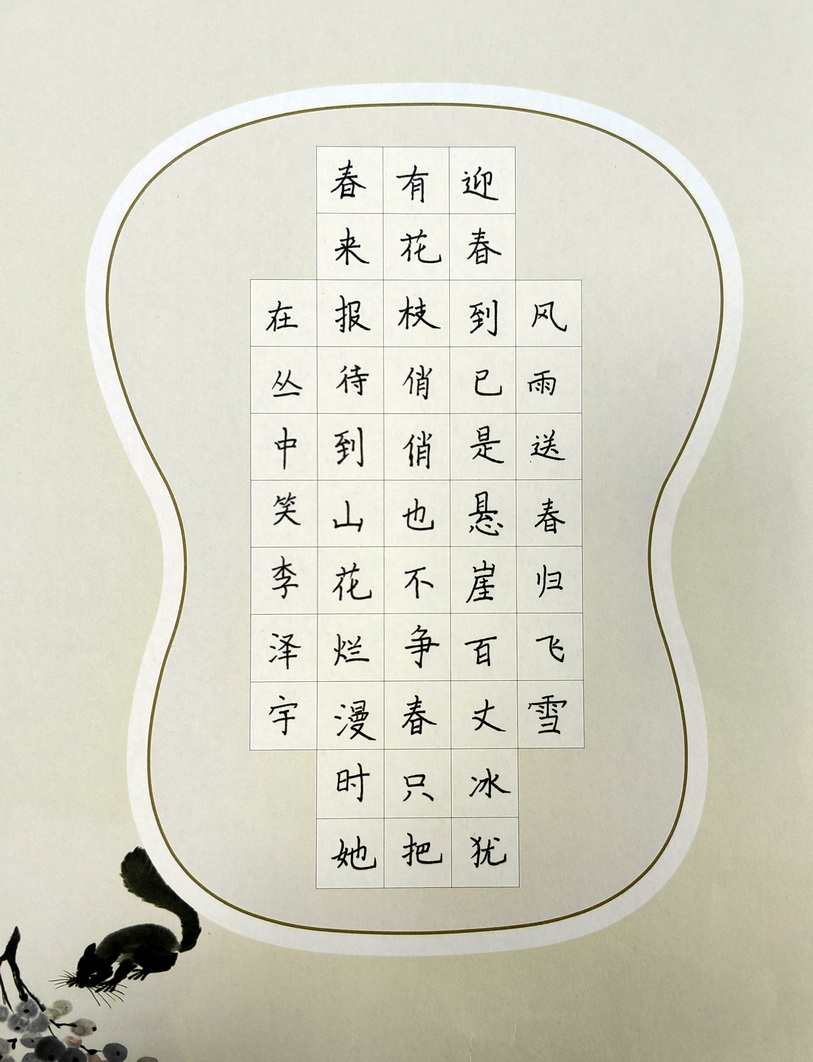 风雨送春归飞雪
迎春到已是悬崖百丈冰犹
有花枝俏俏也不争春只把
春来报待到山花烂漫时她
在丛中笑李泽宇